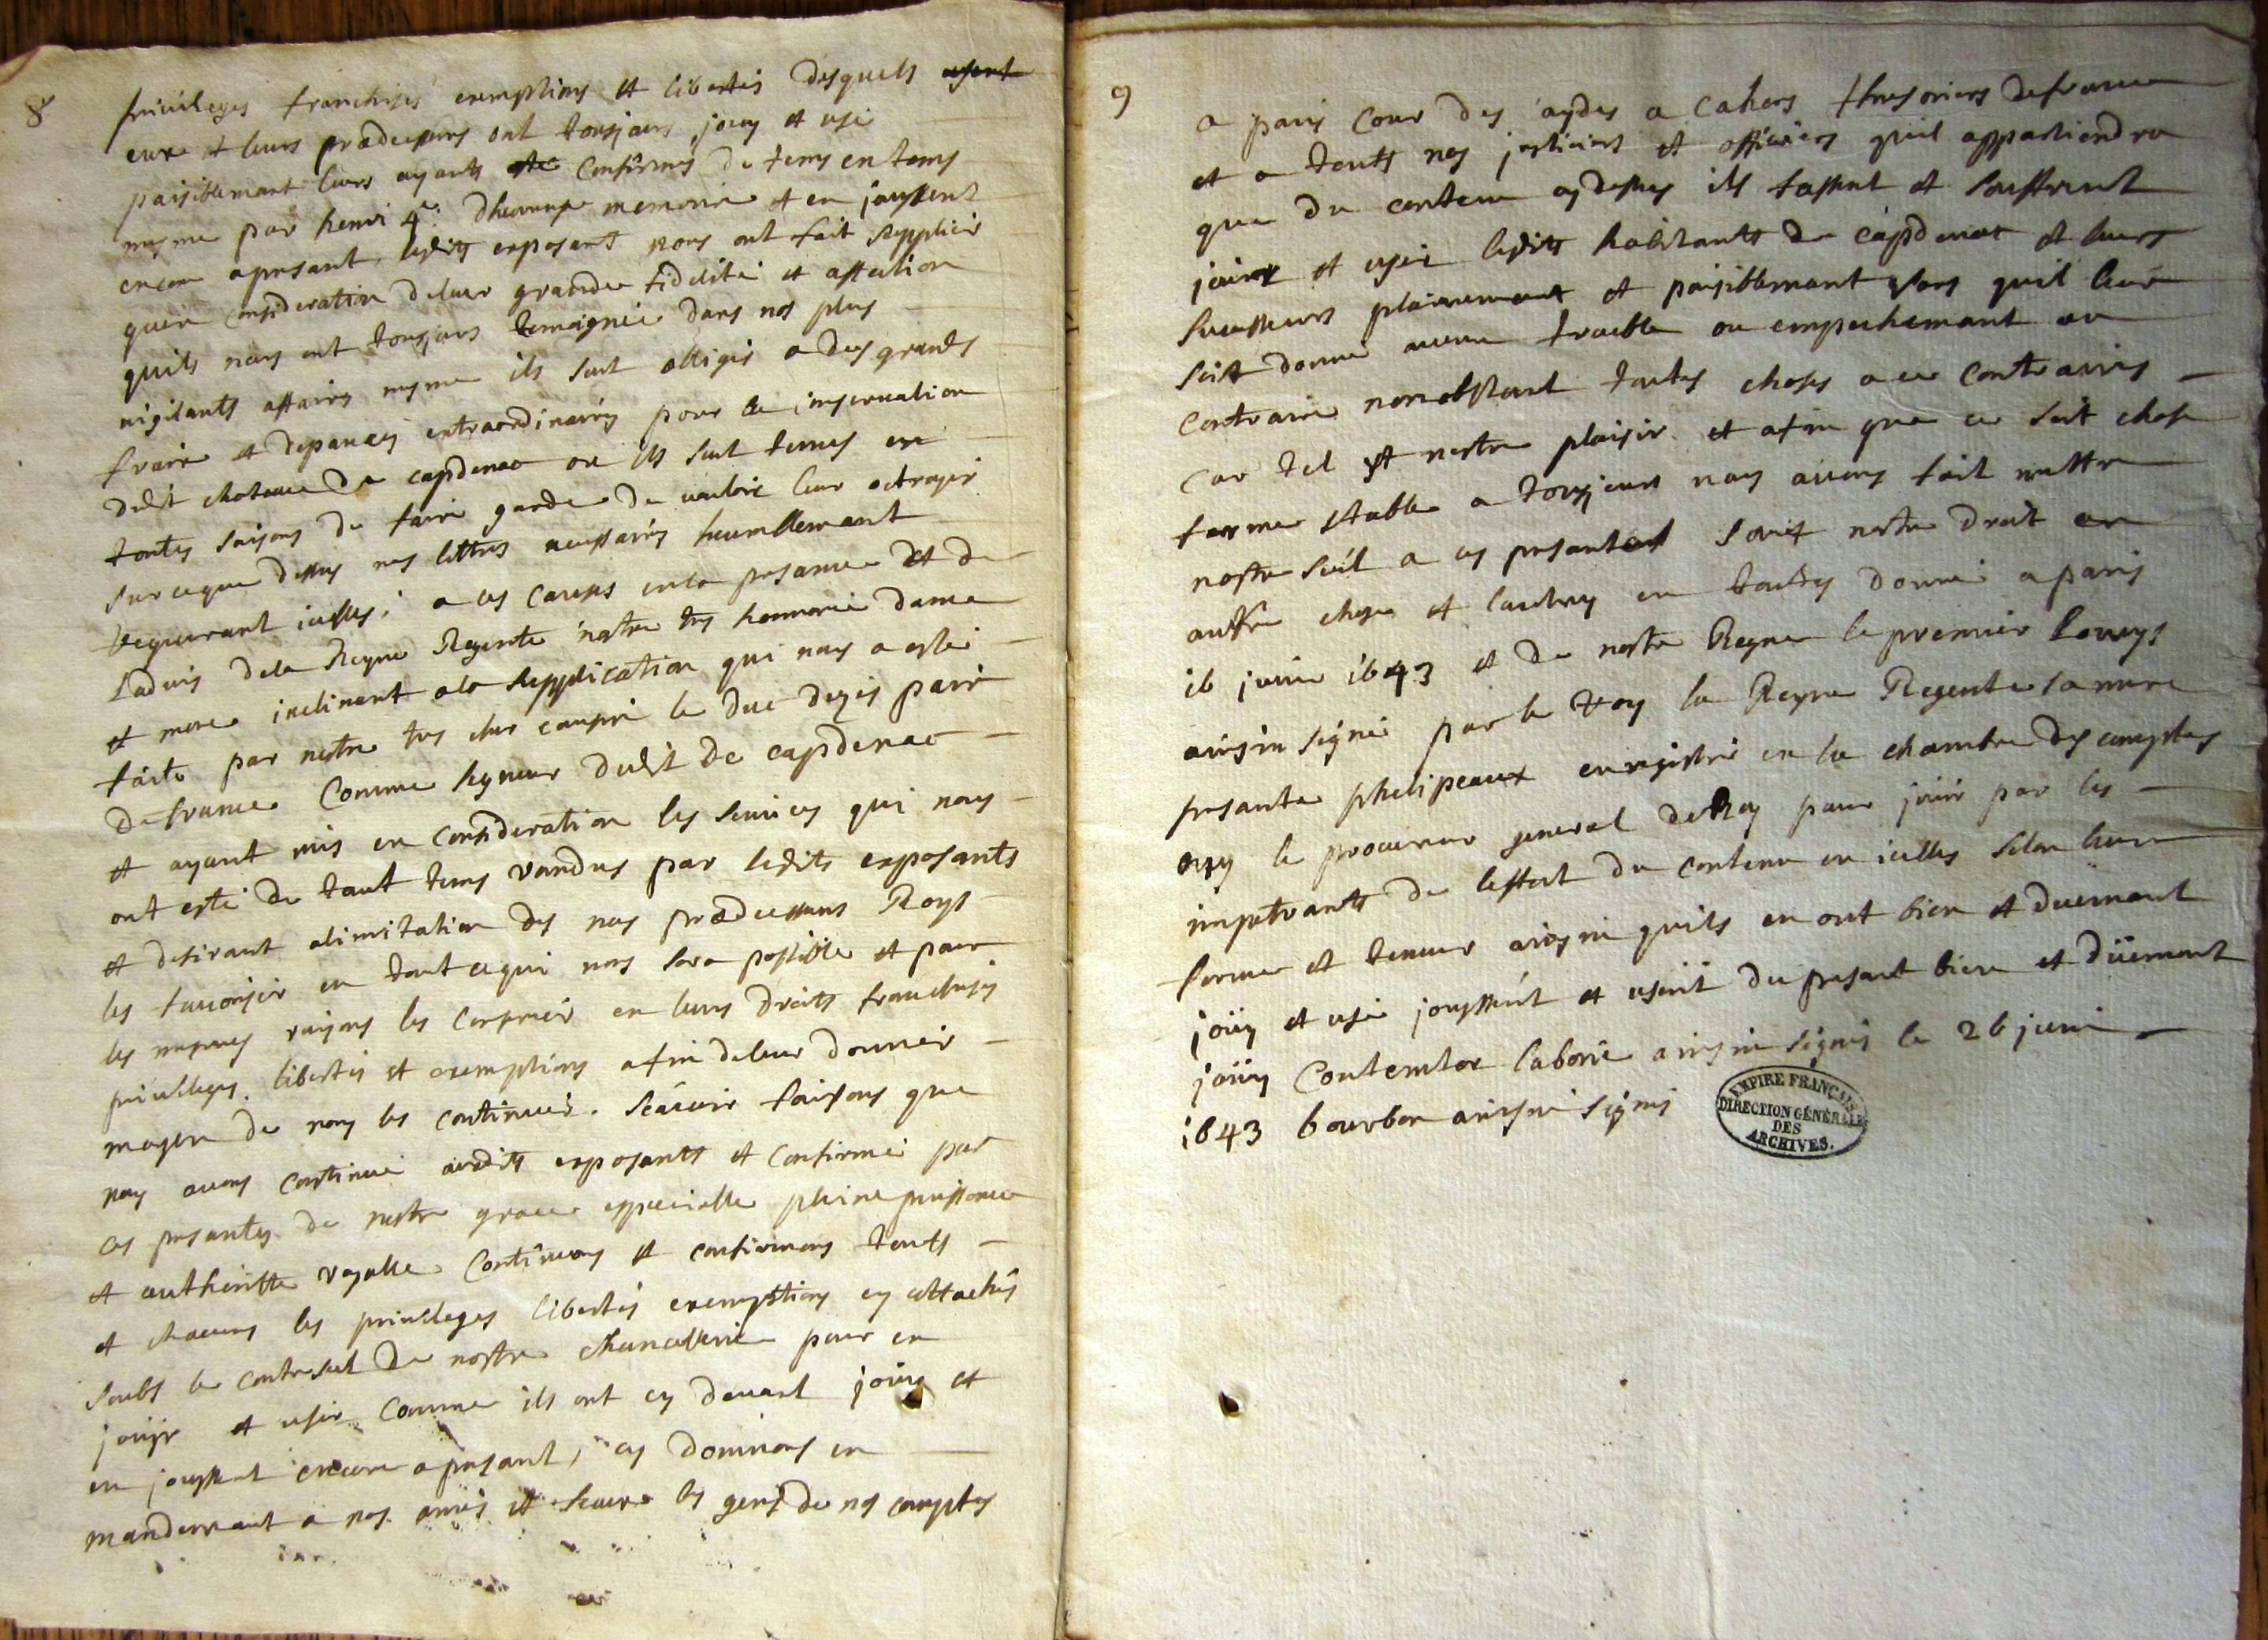 8
privileges franchises exemptions et libertés desquels usent
eux et leurs prædecesseurs ont tousjours jouy et usé
paisiblemant leurs ayants esté confirmés de tems en tems
mesme par henri 4e. dheureuse memoire et en jouyssent
encore apresant, lesdits exposants nous ont fait supplier
quen consideration de leur grande fidelité et affection
quils nous ont tousjours temoignée dans nos plus
affaires mesme ils sont obligés a des grands
fraix et depances extraordinaires pour la conservation
dudit chateau de capdenac ou ils sont tenus en
toutes saisons de faire garde de vouloir leur octroyer
sur ce que dessus nos lettres necessaires humblemant
requerant icelles; a ces causes en la presance et de
ladvis de la Reyne Regente nostre tres honnorée dame
et mere inclinant a la supplication qui nous a esté
faite par nostre tres cher cousin le duc dezés pair
de france comme segneur dudit de capdenac
et ayant mis en consideration les services qui nous
ont esté de tout tems randus par lesdits exposants
et desirant alimitation des nos prædecesseurs Roys
les favoriser en tout ce qui nous sera possible et pour
les mesmes raisons les conserver en leurs droits franchises
privileges, libertés et exemptions afin de leur donner
moyen de nous les continuer. scavoir faisons que
nous avons continué ausdits exposants et confirmé par
ces presantes de nostre grace especialle pleine puissance
et authoritte royalle continuons et confirmons touts
et chacuns les privileges libertés exemptions cy attachés
soubs le contresel de nostre chancellerie pour en
jouyr et user comme ils ont cy devant jouy et
en jouyssent encore apresant, cy donnons en
mandemant a nos amés et feaux les gens de nos comptes
9
a paris cour des aydes a cahors thresoriers de france
et a touts nos justiciers et officiers quil appartiendra
que du contenu cy dessus ils fassent et souffrent
jouir et user lesdits habitants de capdenac et leurs
successeurs plainemant et paisiblemant sans quil leur
soit donné aucun trouble ou empechemant au
contraire nonobstant toutes choses a ce contraires
car tel est nostre plaisir. et afin que ce soit chose
ferme stable a tousjours nous avons fait mettre
nostre seel a ces presantes sauf nostre droit en
autre chose et lautruy en toutes donné a paris
16 juin 1643 et de nostre Regne le premier Louys
ainsin signé par le roy la Reyne Regente sa mere
presante phelipeaux enregistré en la chambre des comptes
ouy le procureur general du Roy pour jouir par les
impetrants de leffect du contenu en icelles selon leur
forme et teneur ainsin quils en ont bien et duemant
joüy et usé jouyssent et usent du presant bien et düemant
joüy Contentor laborie ainsin signés le 26 juin
1643 bourbon ainsin signés
EMPIRE FRANÇAIS
DIRECTION GÉNÉRALE
DES
ARCHIVES.